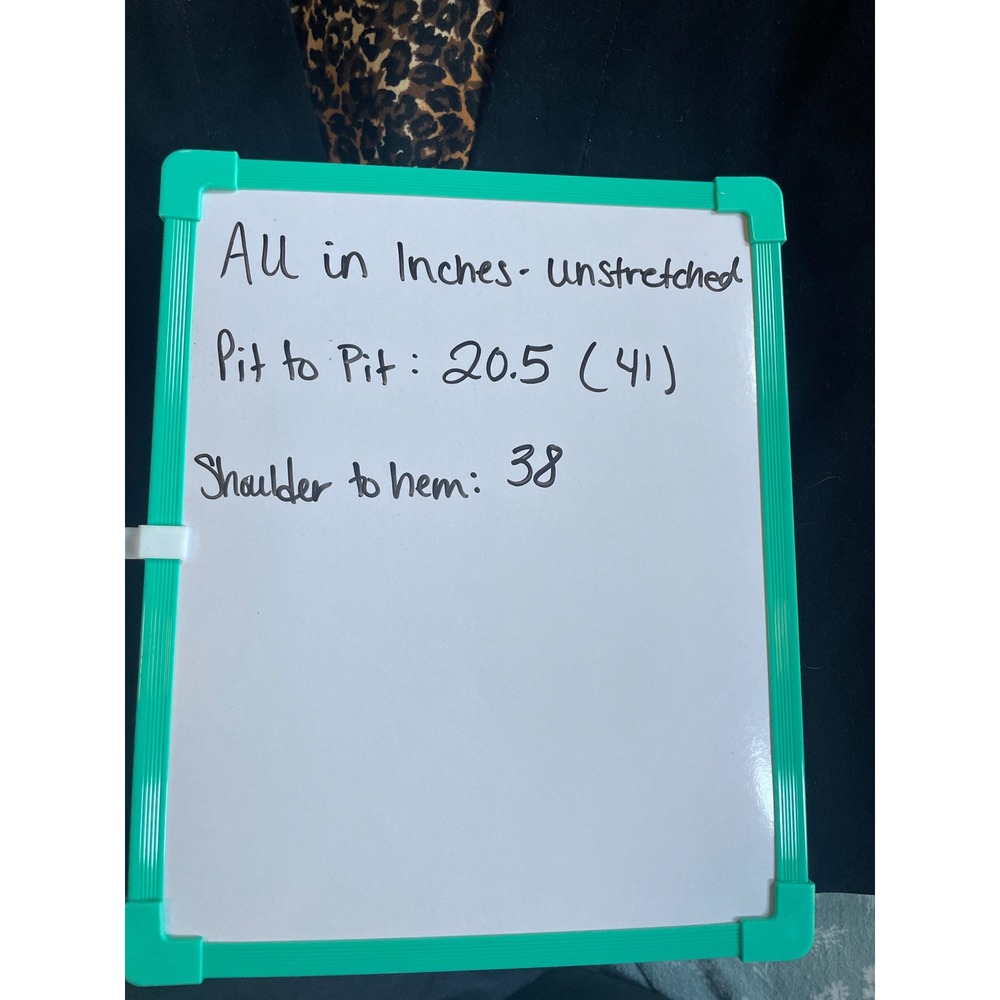 All in Inches - unstretched
Pit to Pit: 20.5 (41)
Shoulder to hem: 38